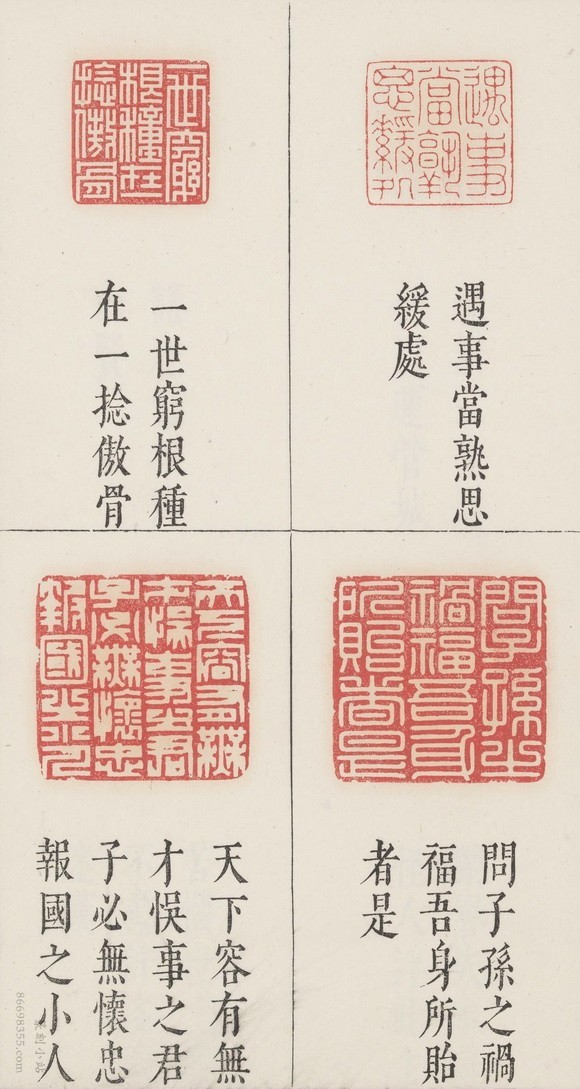 遇事當熟思
緩處
一世窮根種
在一捻傲骨
問子孫之禍
福吾身所貽
者是
天下容有無
才悞事之君
子必無懷忠
報國之小人
86698355.com